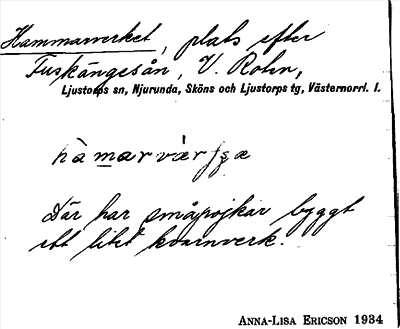 Hammarverket, plats efter
Fuskängesån, V. Rohn,
Ljustorps sn, Njurunda, Sköns och Ljustorps tg, Västernorrl. l.
Där har småpojkar byggt
ett litet kvarnverk.
ANNA-LISA ERICSON 1934